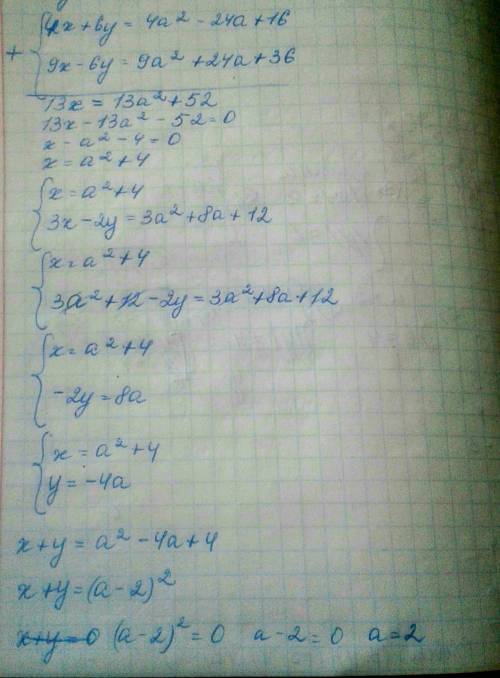 + { 4x+6y = 4a² - 24a + 16
9x - 6y = 9a² + 24a + 36
13x = 13a² + 52
13x - 13a² - 52 = 0
x - a² - 4 = 0
x = a² + 4
{ x = a² + 4
3x - 2y = 3a² + 8a + 12
{ x = a² + 4
3a² + 12 - 2y = 3a² + 8a + 12
{ x = a² + 4
-2y = 8a
{ x = a² + 4
y = -4a
x+y = a² - 4a + 4
x+y = (a-2)²
x+y=0 (a-2)² = 0 a-2=0 a=2